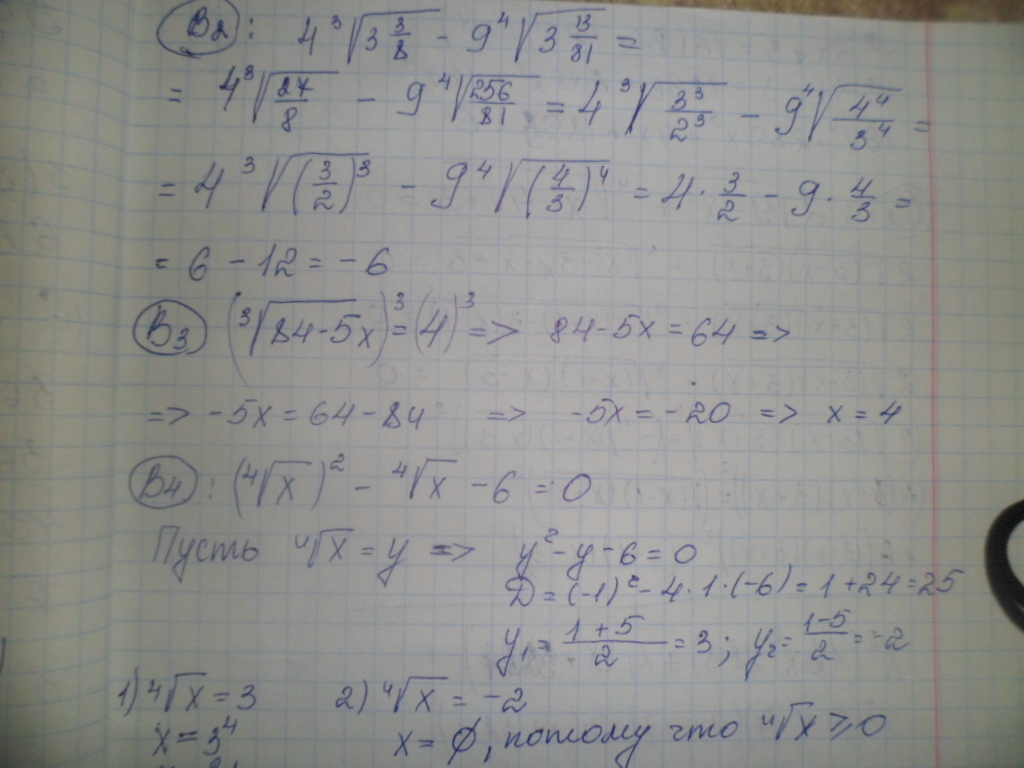 B2: 4∛(3 3/8) - 9∜(3 13/81) =
= 4∛(27/8) - 9∜(256/81) = 4∛(3³/2³) - 9∜(4⁴/3⁴) =
= 4∛((3/2)³) - 9∜((4/3)⁴) = 4·3/2 - 9·4/3 =
= 6 - 12 = -6
B3 (∛(84-5x))³ = (4)³ => 84-5x = 64 =>
=> -5x = 64-84 => -5x = -20 => x = 4
B4: (∜x)² - ∜x - 6 = 0
Пусть ∜x = y => y² - y - 6 = 0
D = (-1)² - 4·1·(-6) = 1+24 = 25
y₁ = (1+5)/2 = 3; y₂ = (1-5)/2 = -2
1) ∜x = 3 2) ∜x = -2
x = 3⁴ x = ∅, потому что ∜x ≥ 0